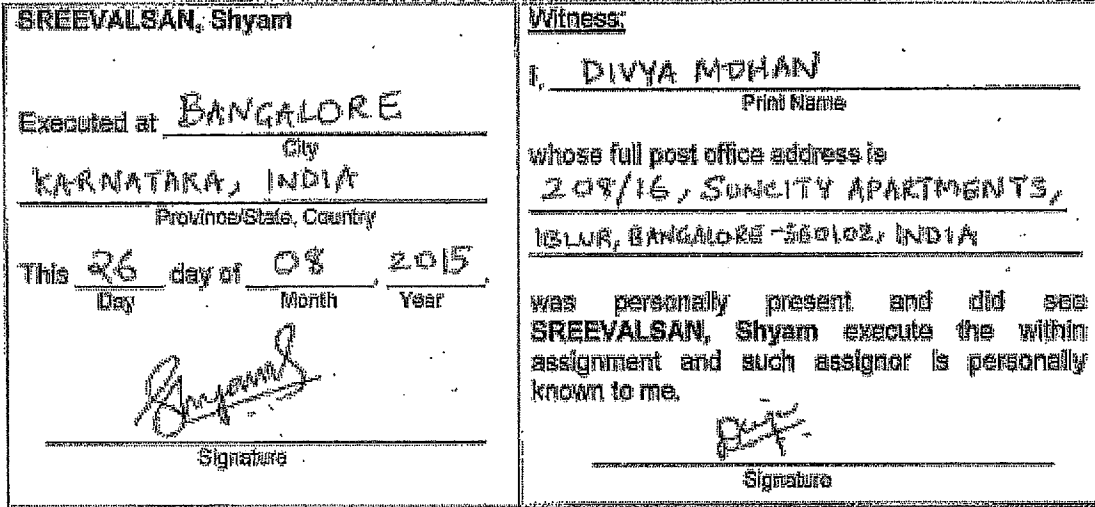 SREEVALSAN, Shyam
Executed at BANGALORE
City
KARNATAKA, INDIA
Province/State, Country
This 26 day of 08, 2015.
Day Month Year
ShyamS
Signature
Witness:
I, DIVYA MOHAN
Print Name
whose full post office address is
208/16, SUNCITY APARTMENTS,
IBLUR, BANGALORE-560102, INDIA
was personally present and did see
SREEVALSAN, Shyam execute the within
assignment and such assignor is personally
known to me.
Signature